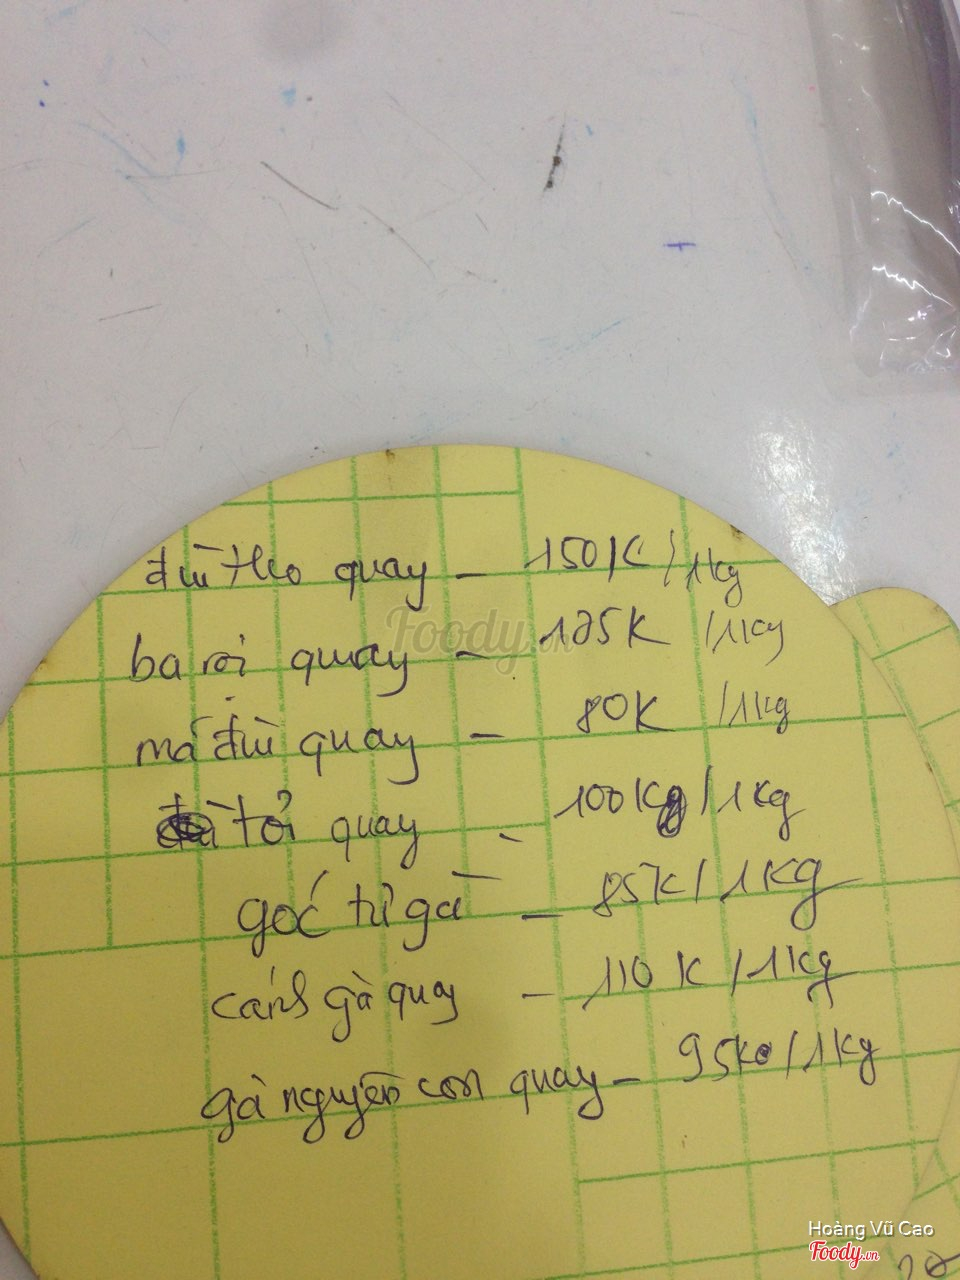 đùi heo quay - 150K/1kg
ba rọi quay - 125K/1kg
má đùi quay - 80K/1kg
tỏi quay - 100K/1kg
góc tư gà - 85K/1Kg
cánh gà quay - 110K/1kg
gà nguyên con quay - 95K/1kg
Foody.vn
Hoàng Vũ Cao
Foody.vn